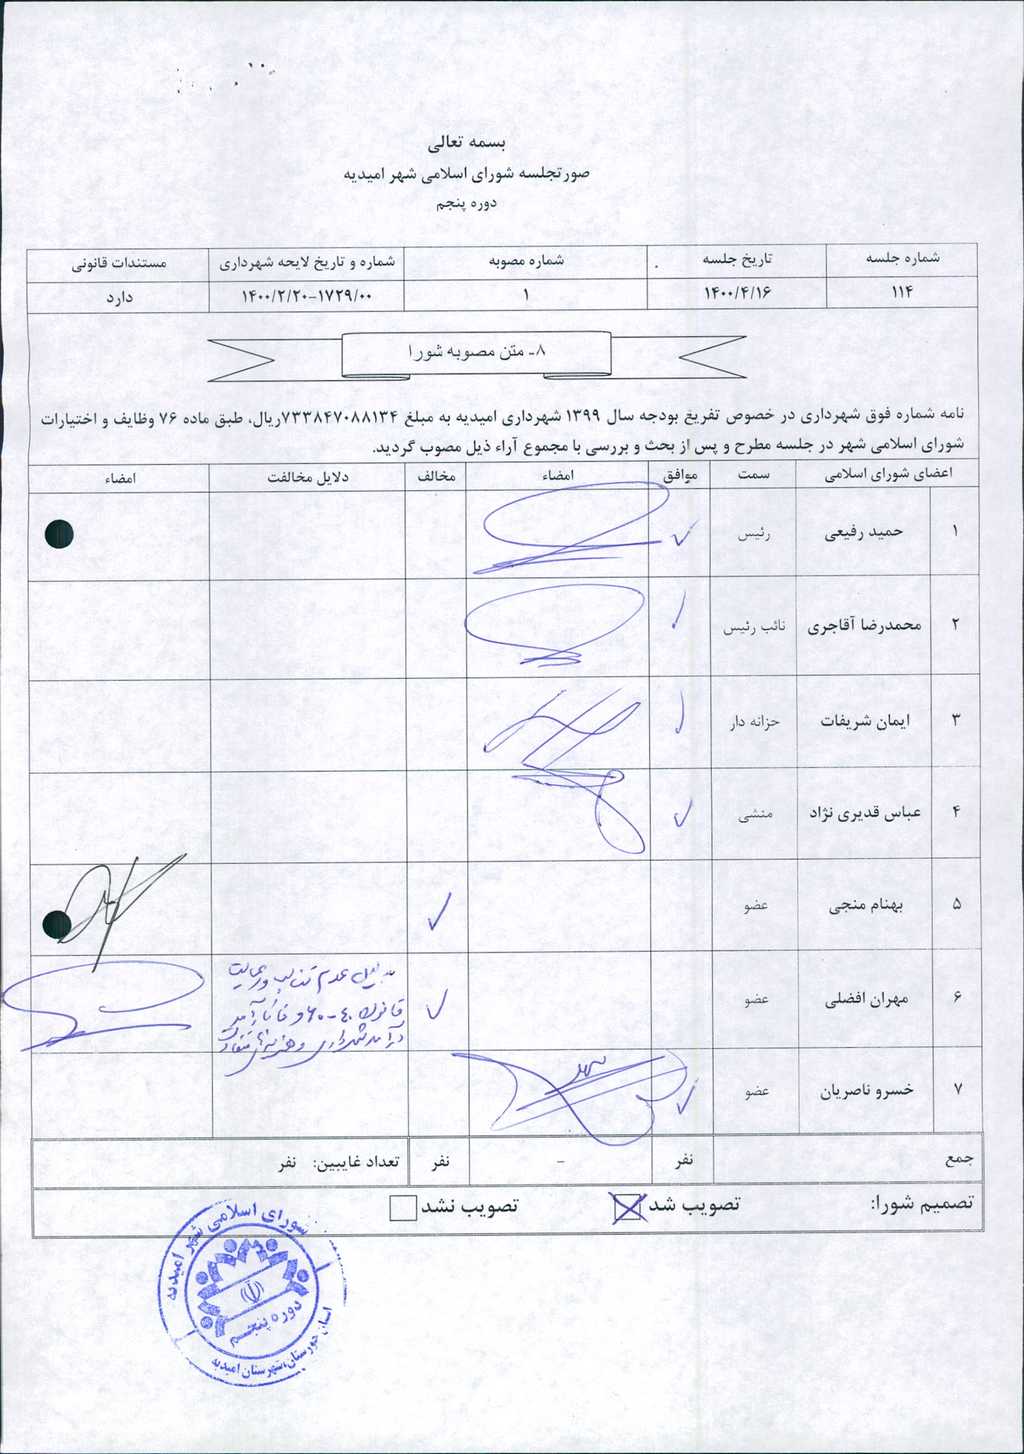 بسمه تعالی
صورتجلسه شورای اسلامی شهر امیدیه
دوره پنجم
شماره جلسه تاریخ جلسه شماره مصوبه شماره و تاریخ لایحه شهرداری مستندات قانونی
۱۱۴ ۱۴۰۰/۴/۱۶ ۱ ۱۴۰۰/۲/۲۰-۱۷۲۹/۰۰ دارد
۸- متن مصوبه شورا
نامه شماره فوق شهرداری در خصوص تفریغ بودجه سال ۱۳۹۹ شهرداری امیدیه به مبلغ ۷۳۳۸۴۷۰۸۸۱۳۴ریال، طبق ماده ۷۶ وظایف و اختیارات
شورای اسلامی شهر در جلسه مطرح و پس از بحث و بررسی با مجموع آراء ذیل مصوب گردید.
اعضای شورای اسلامی سمت موافق امضاء مخالف دلایل مخالفت امضاء
۱ حمید رفیعی رئیس
۲ محمدرضا آقاجری نائب رئیس
۳ ایمان شریفات خزانه دار
۴ عباس قدیری نژاد منشی
۵ بهنام منجی عضو
۶ مهران افضلی عضو
بدلیل عدم رعایت
قانون ۴۰-۶۰ و
درآمد شهرداری و هزینه های
۷ خسرو ناصریان عضو
جمع نفر - نفر تعداد غایبین: نفر
تصمیم شورا: تصویب شد تصویب نشد
شورای اسلامی شهر امیدیه
دوره پنجم
استان خوزستان، شهرستان امیدیه